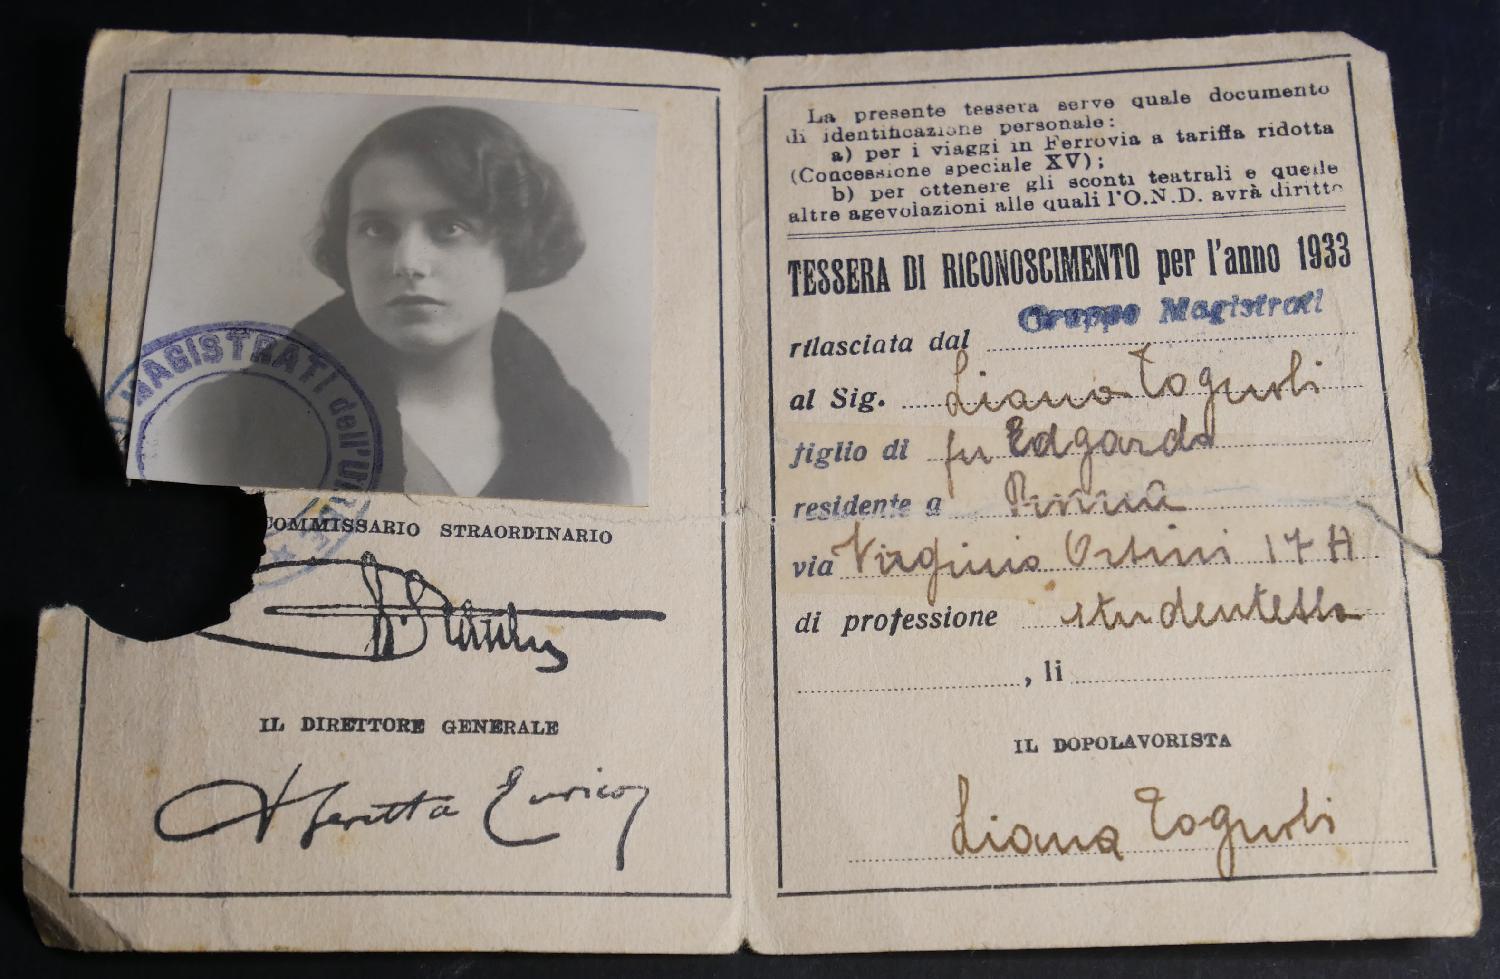 MAGISTRATI dell'U
COMMISSARIO STRAORDINARIO
IL DIRETTORE GENERALE
Beretta Enrico
La presente tessera serve quale documento
di identificazione personale:
a) per i viaggi in Ferrovia a tariffa ridotta
(Concessione speciale XV);
b) per ottenere gli sconti teatrali e quelle
altre agevolazioni alle quali l'O.N.D. avrà diritto
TESSERA DI RICONOSCIMENTO per l'anno 1933
rilasciata dal Gruppo Magistrati
al Sig. Liana Togursli
figlio di fu Edgardo
residente a Roma
via Virginio Orsini 17 A
di professione studentessa
, li
IL DOPOLAVORISTA
Liana Togursli